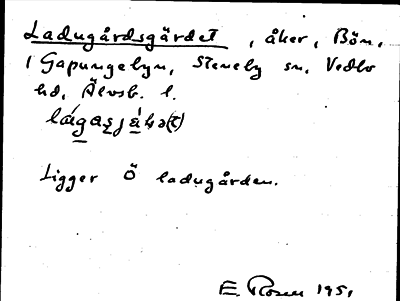 Ladugårdsgärdet, åker, Bön.
1 Gapungebyn, Steneby sn, Vedbo
hd, Älvsb. l.
Ligger Ö ladugården.
E. Rosen 1951